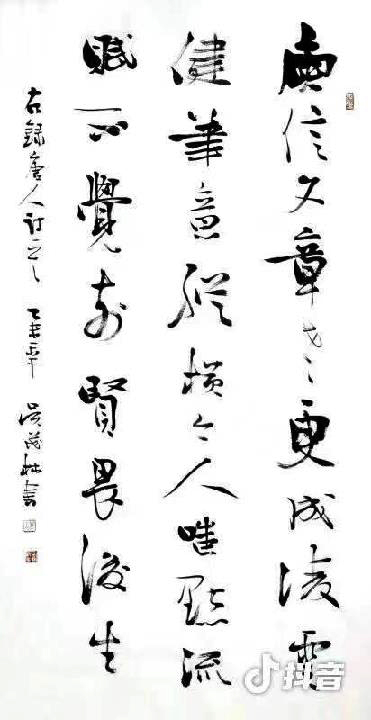 庾信文章老更成凌雲
健筆意縱橫今人嗤點流
賦不覺前賢畏後生
右錄唐人詩 乙未年 吳 書
抖音